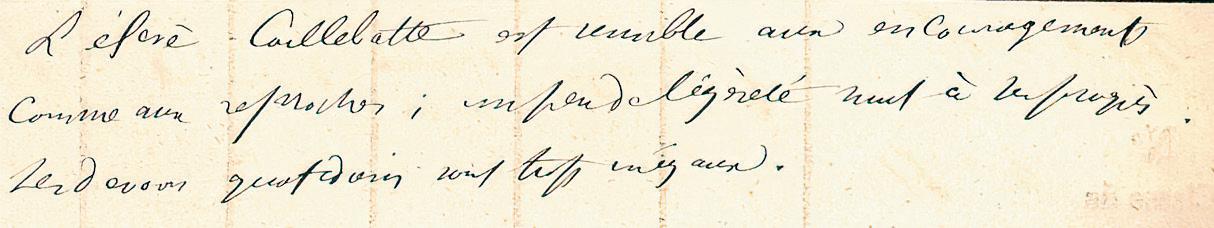 L'élève Caillebotte est sensible aux encouragements
comme aux reproches ; un peu de légèreté nuit à ses progrès.
Ses devoirs quotidiens sont trop inégaux.